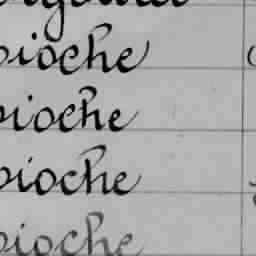 pioche
pioche
pioche
pioche